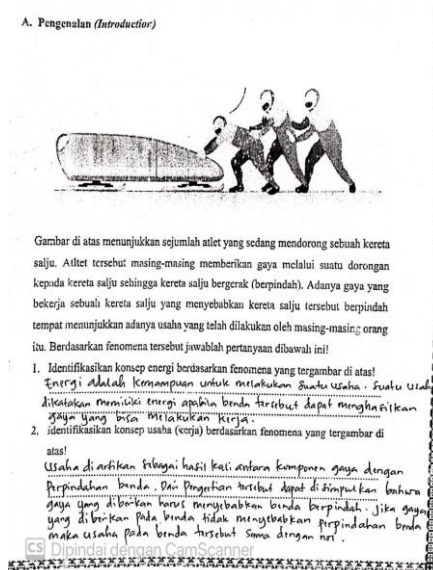 A. Pengenalan (Introduction)
Gambar di atas menunjukkan sejumlah atlet yang sedang mendorong sebuah kereta
salju. Atltet tersebut masing-masing memberikan gaya melalui suatu dorongan
kepada kereta salju sehingga kereta salju bergerak (berpindah). Adanya gaya yang
bekerja sebuah kereta salju yang menyebabkan kereta salju tersebut berpindah
tempat menunjukkan adanya usaha yang telah dilakukan oleh masing-masing orang
itu. Berdasarkan fenomena tersebut jawablah pertanyaan dibawah ini!
1. Identifikasikan konsep energi berdasarkan fenomena yang tergambar di atas!
Energi adalah kemampuan untuk melakukan suatu usaha. Suatu
dikatakan memiliki energi apabila benda tersebut dapat menghasilkan
gaya yang bisa melakukan kerja.
2. identifikasikan konsep usaha (kerja) berdasarkan fenomena yang tergambar di
atas!
Usaha di artikan sebagai hasil kali antara komponen gaya dengan
Perpindahan benda. Dari Pengertian tersebut dapat di simpulkan bahwa
gaya yang diberikan harus menyebabkan benda berpindah. Jika gaya
yang diberikan pada benda tidak menyebabkan perpindahan benda
maka usaha pada benda tersebut sama dengan
CS Dipindai dengan CamScanner